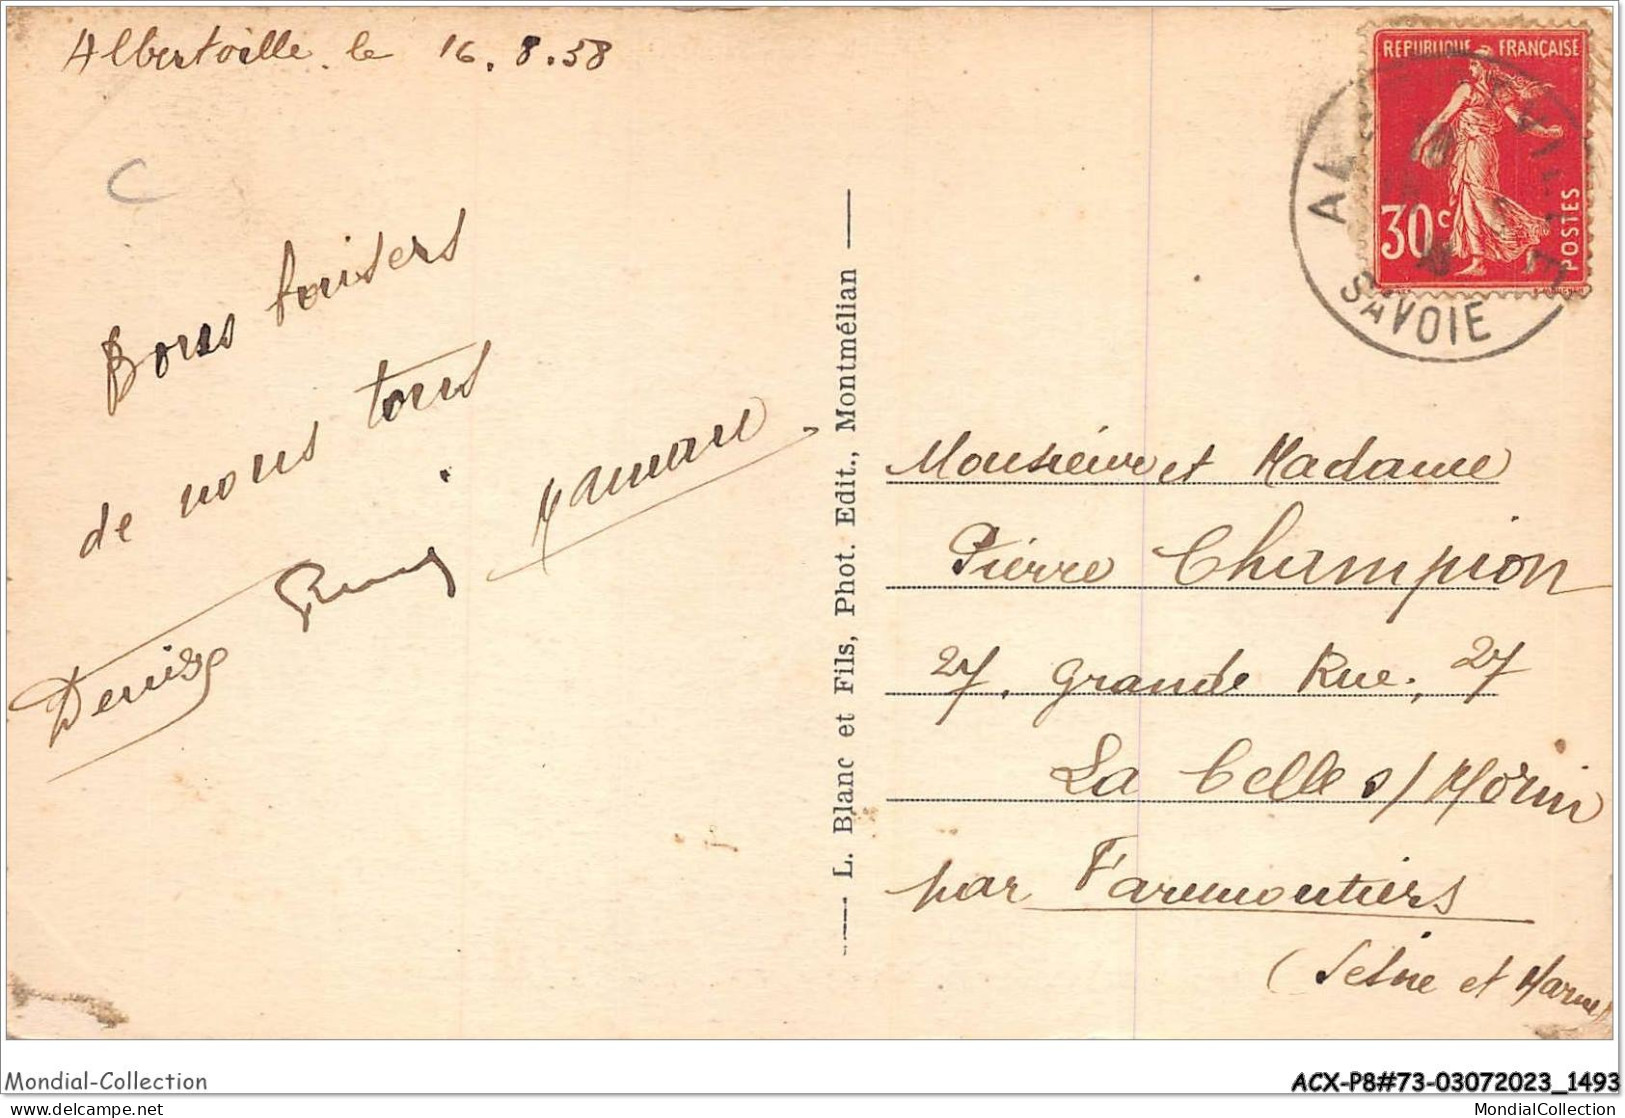 Albertville. le 16.8.38
REPUBLIQUE FRANÇAISE
30c
POSTES
ALBERTVILLE
SAVOIE
Bons baisers
de nous tous
Maman
Denise
L. Blanc et Fils, Phot. Edit., Montmélian
Monsieur et Madame
Pierre Champion
27, Grande Rue, 27
La Celle s/Morin
par Faremoutiers
(Seine et Marne)
Mondial-Collection
ACX-P8#73-03072023_1493
delcampe.net
MondialCollection